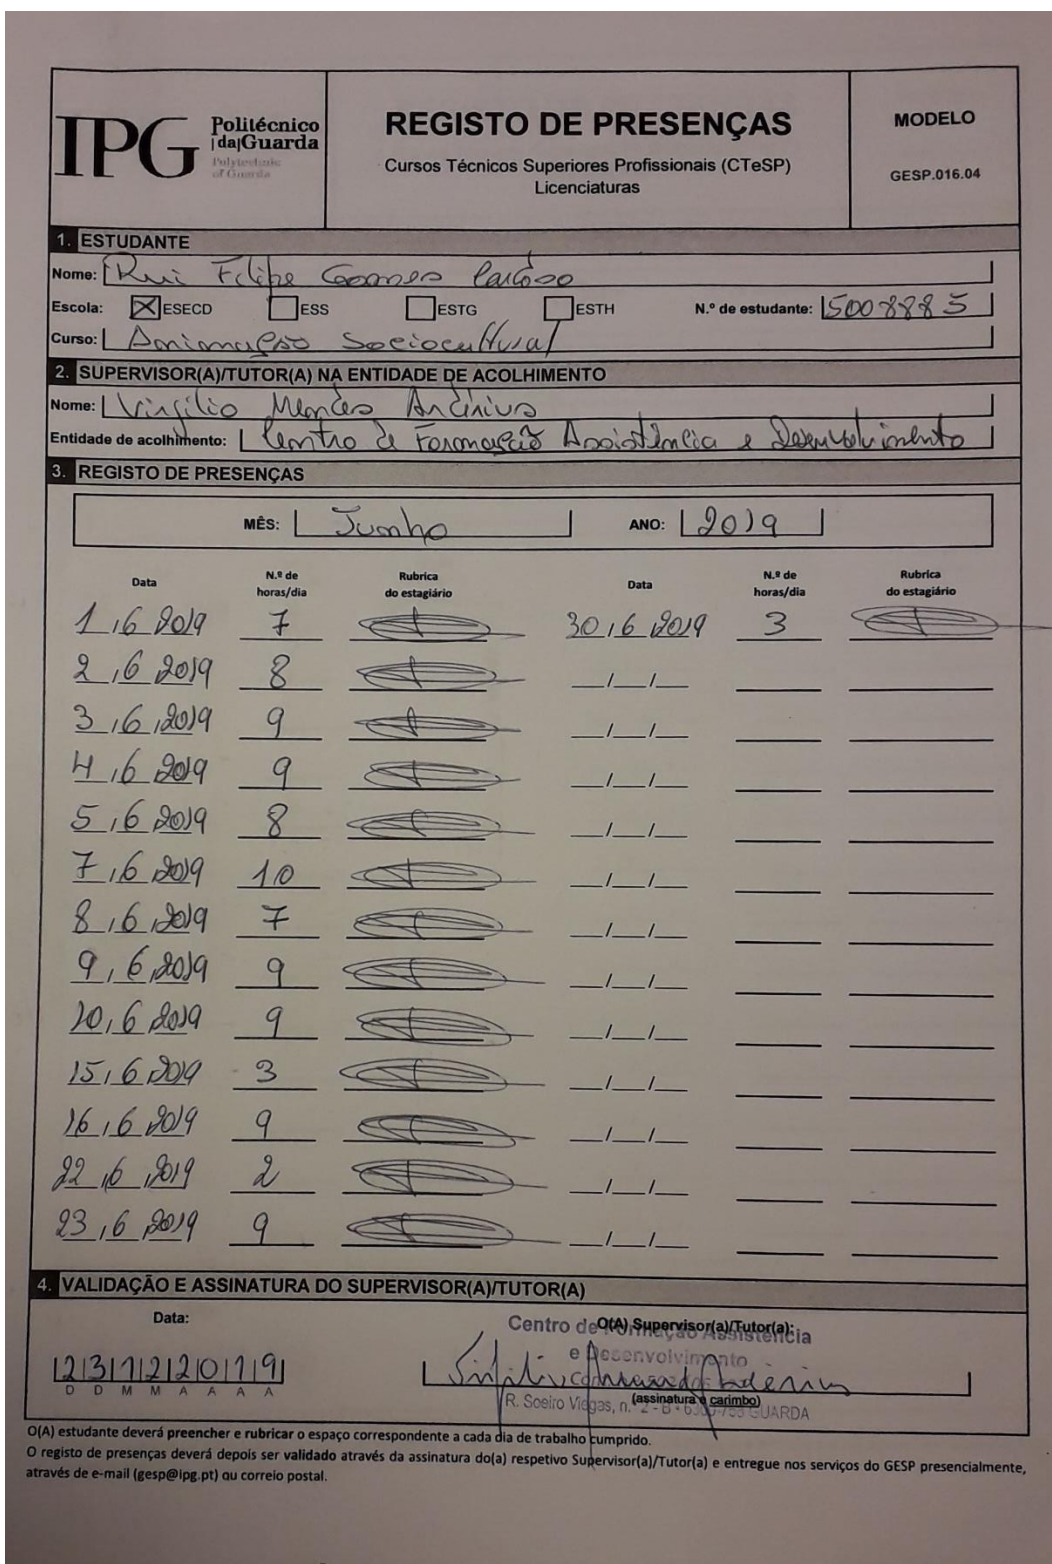 IPG Politécnico |da|Guarda Polytechnic of Guarda
REGISTO DE PRESENÇAS
Cursos Técnicos Superiores Profissionais (CTeSP)
Licenciaturas
MODELO
GESP.016.04
1. ESTUDANTE
Nome: Rui Filipe Gomes Cardoso
Escola: ESECD ESS ESTG ESTH N.º de estudante: 5008885
Curso: Animação Sociocultural
2. SUPERVISOR(A)/TUTOR(A) NA ENTIDADE DE ACOLHIMENTO
Nome: Virgílio Mendes
Entidade de acolhimento: Centro de Formação Assistência e Desenvolvimento
3. REGISTO DE PRESENÇAS
MÊS: Junho ANO: 2019
Data N.º de horas/dia Rubrica do estagiário Data N.º de horas/dia Rubrica do estagiário
1/6/2019 7 30/6/2019 3
2/6/2019 8 __/__/__
3/6/2019 9 __/__/__
4/6/2019 9 __/__/__
5/6/2019 8 __/__/__
7/6/2019 10 __/__/__
8/6/2019 7 __/__/__
9/6/2019 9 __/__/__
10/6/2019 9 __/__/__
15/6/2019 3 __/__/__
16/6/2019 9 __/__/__
22/6/2019 2 __/__/__
23/6/2019 9 __/__/__
4. VALIDAÇÃO E ASSINATURA DO SUPERVISOR(A)/TUTOR(A)
Data:
O(A) Supervisor(a)/Tutor(a):
Centro de Formação Assistência
e Desenvolvimento
|2|3|1|2|2|0|1|9|
D D M M A A A A
(assinatura e carimbo)
R. Soeiro Viegas, n.º 2 - B • 6300-758 GUARDA
O(A) estudante deverá preencher e rubricar o espaço correspondente a cada dia de trabalho cumprido.
O registo de presenças deverá depois ser validado através da assinatura do(a) respetivo Supervisor(a)/Tutor(a) e entregue nos serviços do GESP presencialmente,
através de e-mail (gesp@ipg.pt) ou correio postal.